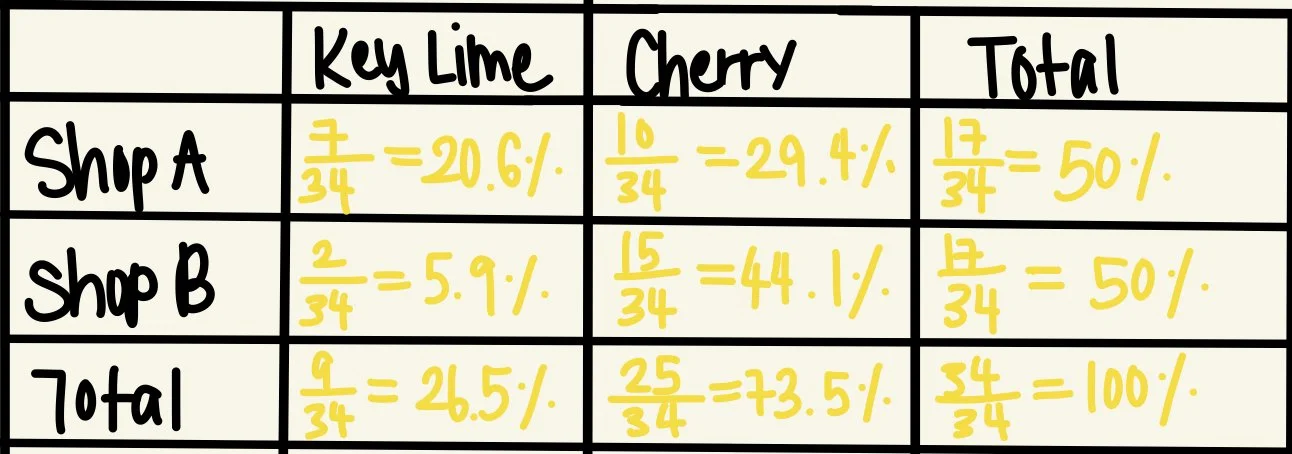 Key Lime Cherry Total
Shop A 7/34 = 20.6% 10/34 = 29.4% 17/34 = 50%
Shop B 2/34 = 5.9% 15/34 = 44.1% 17/34 = 50%
Total 9/34 = 26.5% 25/34 = 73.5% 34/34 = 100%